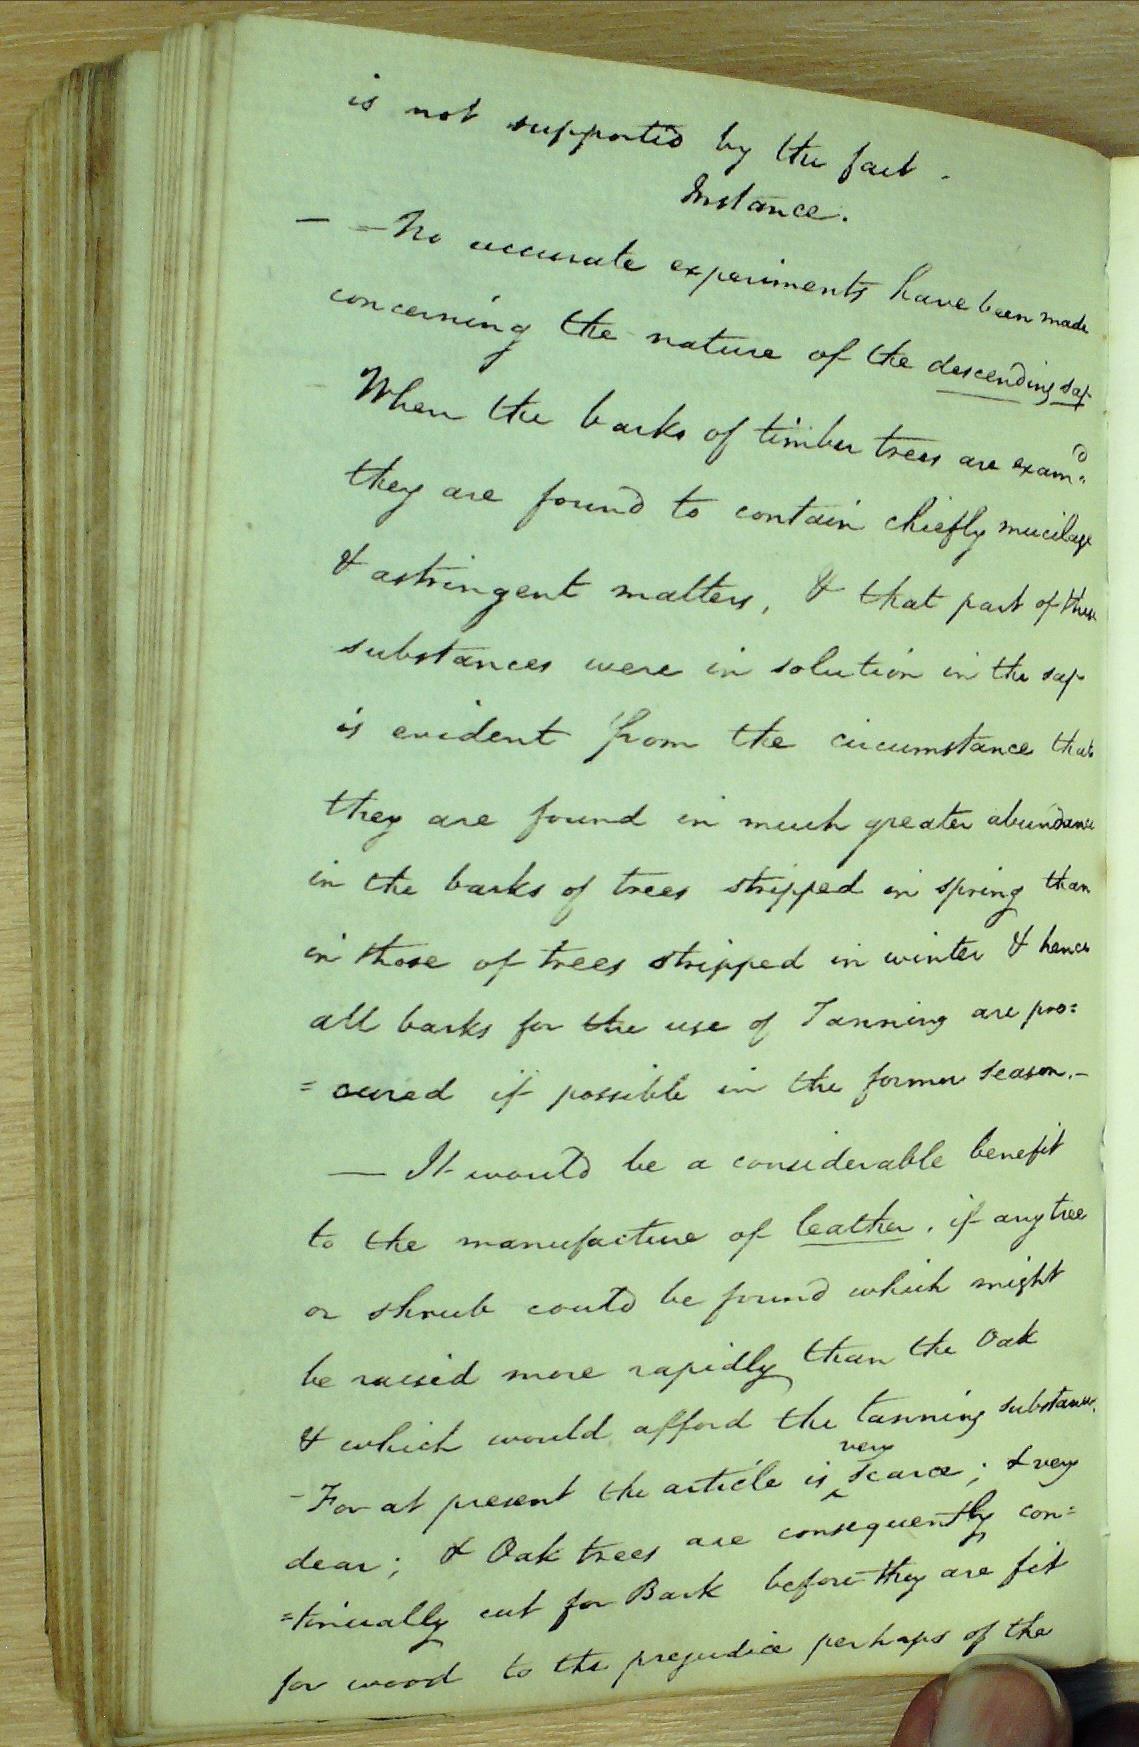 is not supported by the fact.
Instance.
— =No accurate experiments have been made
concerning the nature of the descending sap
When the barks of timber trees are exam.d
they are found to contain chiefly mucilage
& astringent matters, & that part of these
substances were in solution in the sap
is evident from the circumstance that
they are found in much greater abundance
in the barks of trees stripped in spring than
in those of trees stripped in winter & hence
all barks for the use of Tanning are pro=
=cured if possible in the former season.—
— It would be a considerable benefit
to the manufacture of leather, if any tree
or shrub could be found which might
be raised more rapidly than the Oak
& which would afford the tanning substance.
very
-For at present the article is ^ scarce; & very
dear; & Oak trees are consequently con=
=tinually cut for Bark before they are fit
for wood to the prejudice perhaps of the